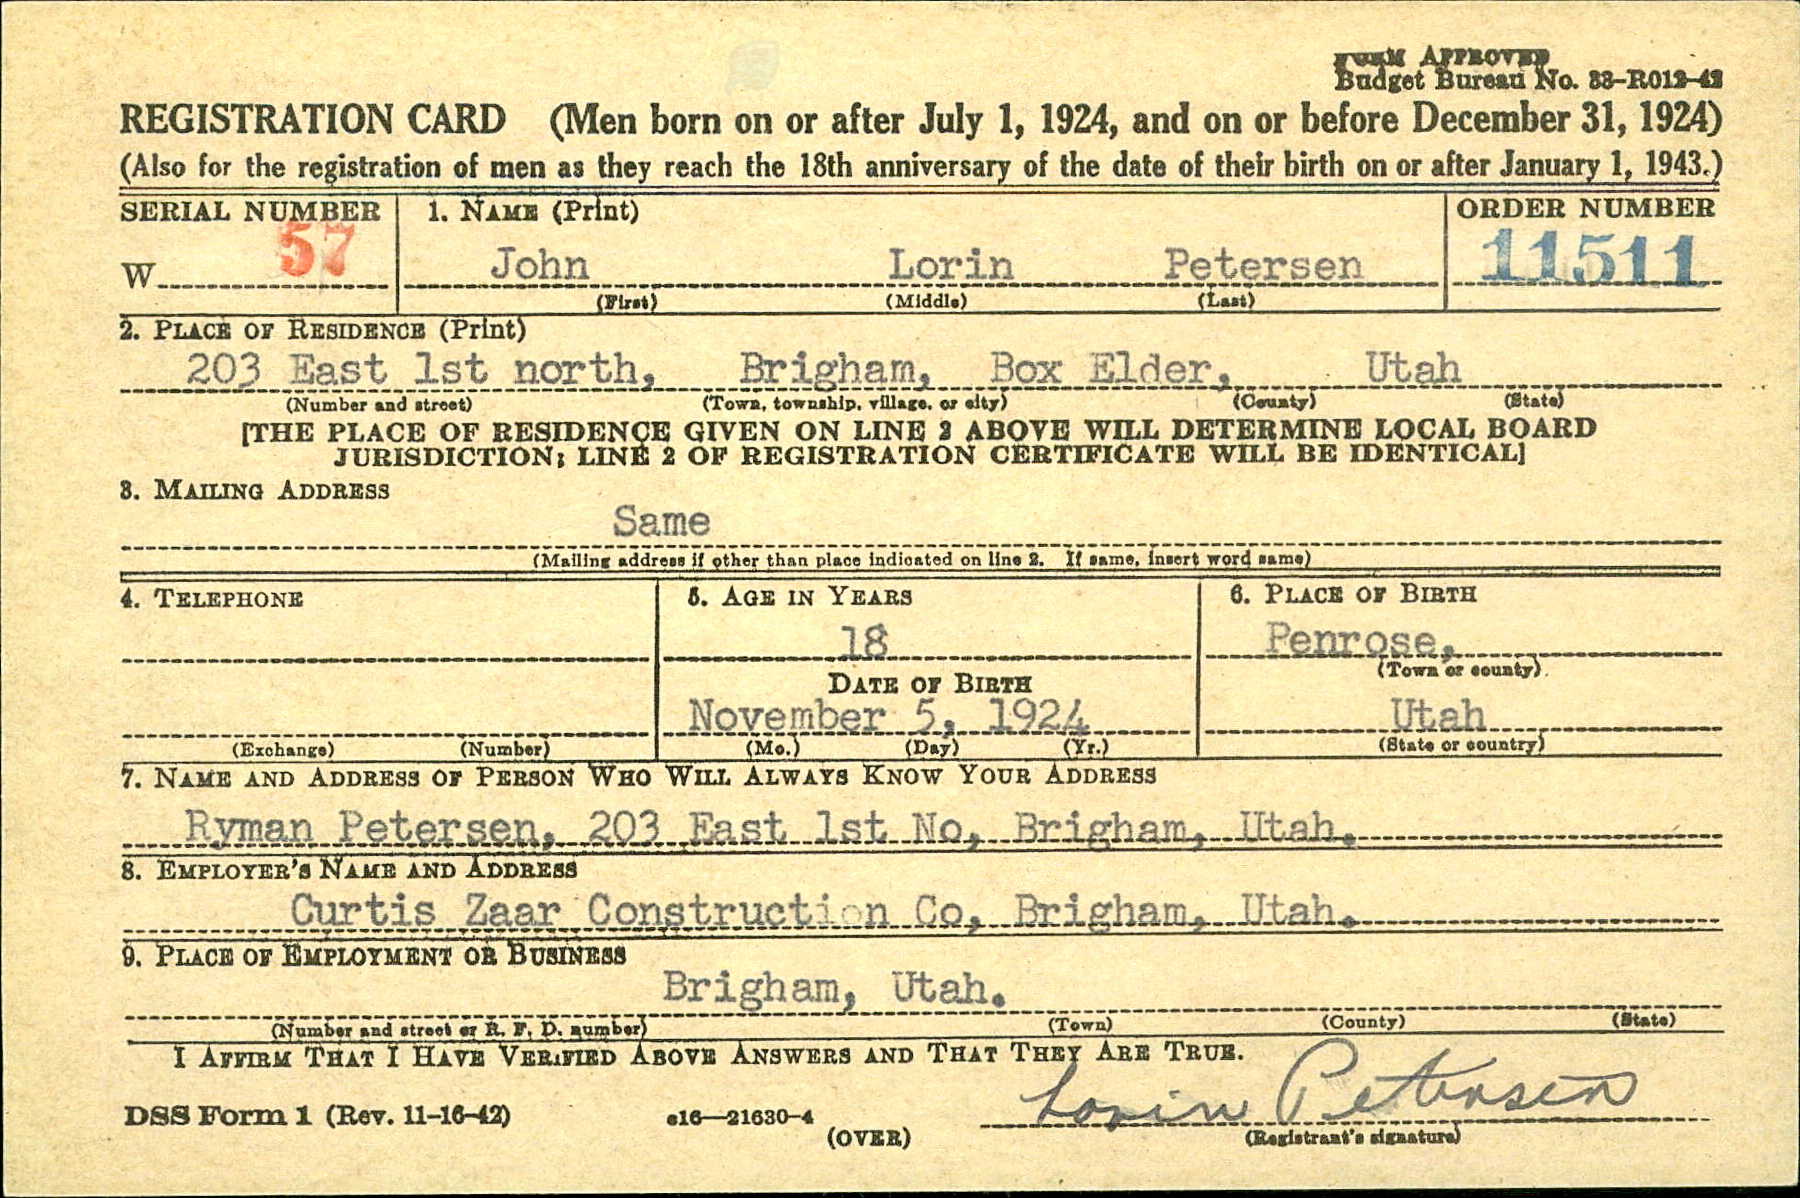 FORM APPROVED
Budget Bureau No. 33-R012-42
REGISTRATION CARD (Men born on or after July 1, 1924, and on or before December 31, 1924)
(Also for the registration of men as they reach the 18th anniversary of the date of their birth on or after January 1, 1943.)
SERIAL NUMBER 1. NAME (Print) ORDER NUMBER
W 57 John Lorin Petersen 11511
(First) (Middle) (Last)
2. PLACE OF RESIDENCE (Print)
203 East 1st north, Brigham, Box Elder, Utah
(Number and street) (Town, township, village, or city) (County) (State)
[THE PLACE OF RESIDENCE GIVEN ON LINE 2 ABOVE WILL DETERMINE LOCAL BOARD
JURISDICTION; LINE 2 OF REGISTRATION CERTIFICATE WILL BE IDENTICAL]
3. MAILING ADDRESS
Same
(Mailing address if other than place indicated on line 2. If same, insert word same)
4. TELEPHONE 5. AGE IN YEARS 6. PLACE OF BIRTH
18 Penrose,
(Town or county)
DATE OF BIRTH
November 5, 1924 Utah
(Exchange) (Number) (Mo.) (Day) (Yr.) (State or country)
7. NAME AND ADDRESS OF PERSON WHO WILL ALWAYS KNOW YOUR ADDRESS
Ryman Petersen, 203 East 1st No, Brigham, Utah.
8. EMPLOYER'S NAME AND ADDRESS
Curtis Zaar Construction Co, Brigham, Utah.
9. PLACE OF EMPLOYMENT OR BUSINESS
Brigham, Utah.
(Number and street or R. F. D. number) (Town) (County) (State)
I AFFIRM THAT I HAVE VERIFIED ABOVE ANSWERS AND THAT THEY ARE TRUE.
Lorin Petersen
DSS Form 1 (Rev. 11-16-42) c16—21630-4
(OVER) (Registrant's signature)